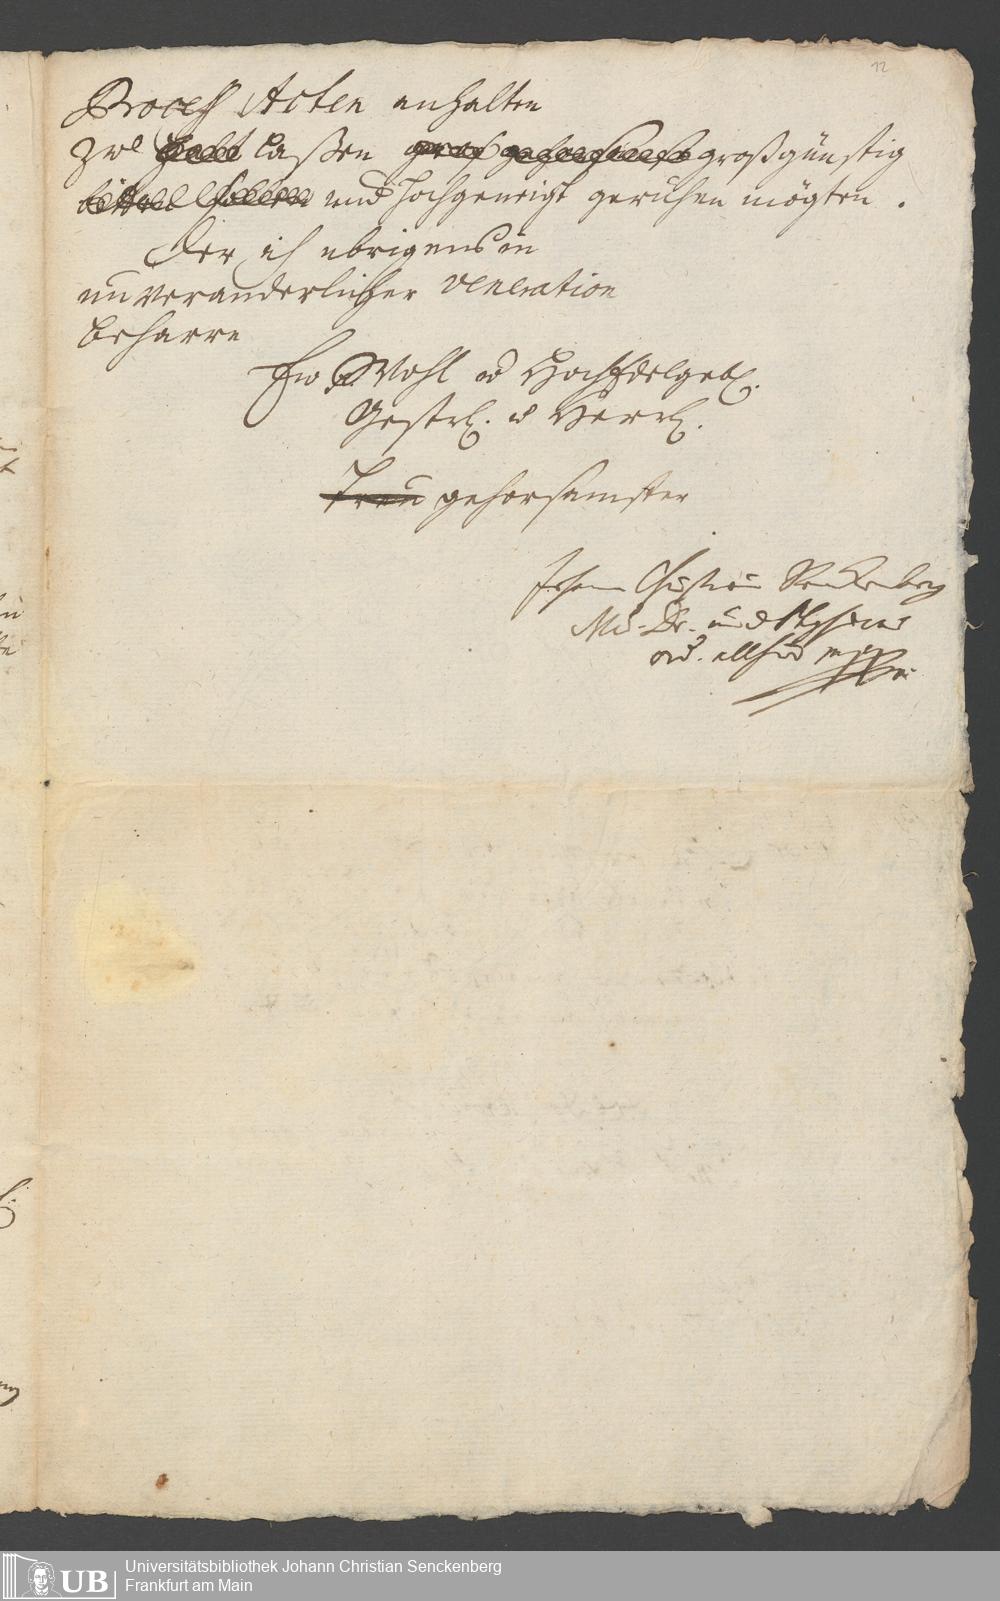 12
Process Acten anhalten
zu laßen großgünstig
und hochgeneigt geruhen mögten.
Der ich ubrigens in
unveranderlicher veneration
beharre
Ew Wohl u Hochedelgeb.
Gestrl. u Herrl.
Treu gehorsamster
Johann Christian Senckenberg
Md. Dr. und Physicus
ord. allhier mppr.
Universitätsbibliothek Johann Christian Senckenberg
UB Frankfurt am Main